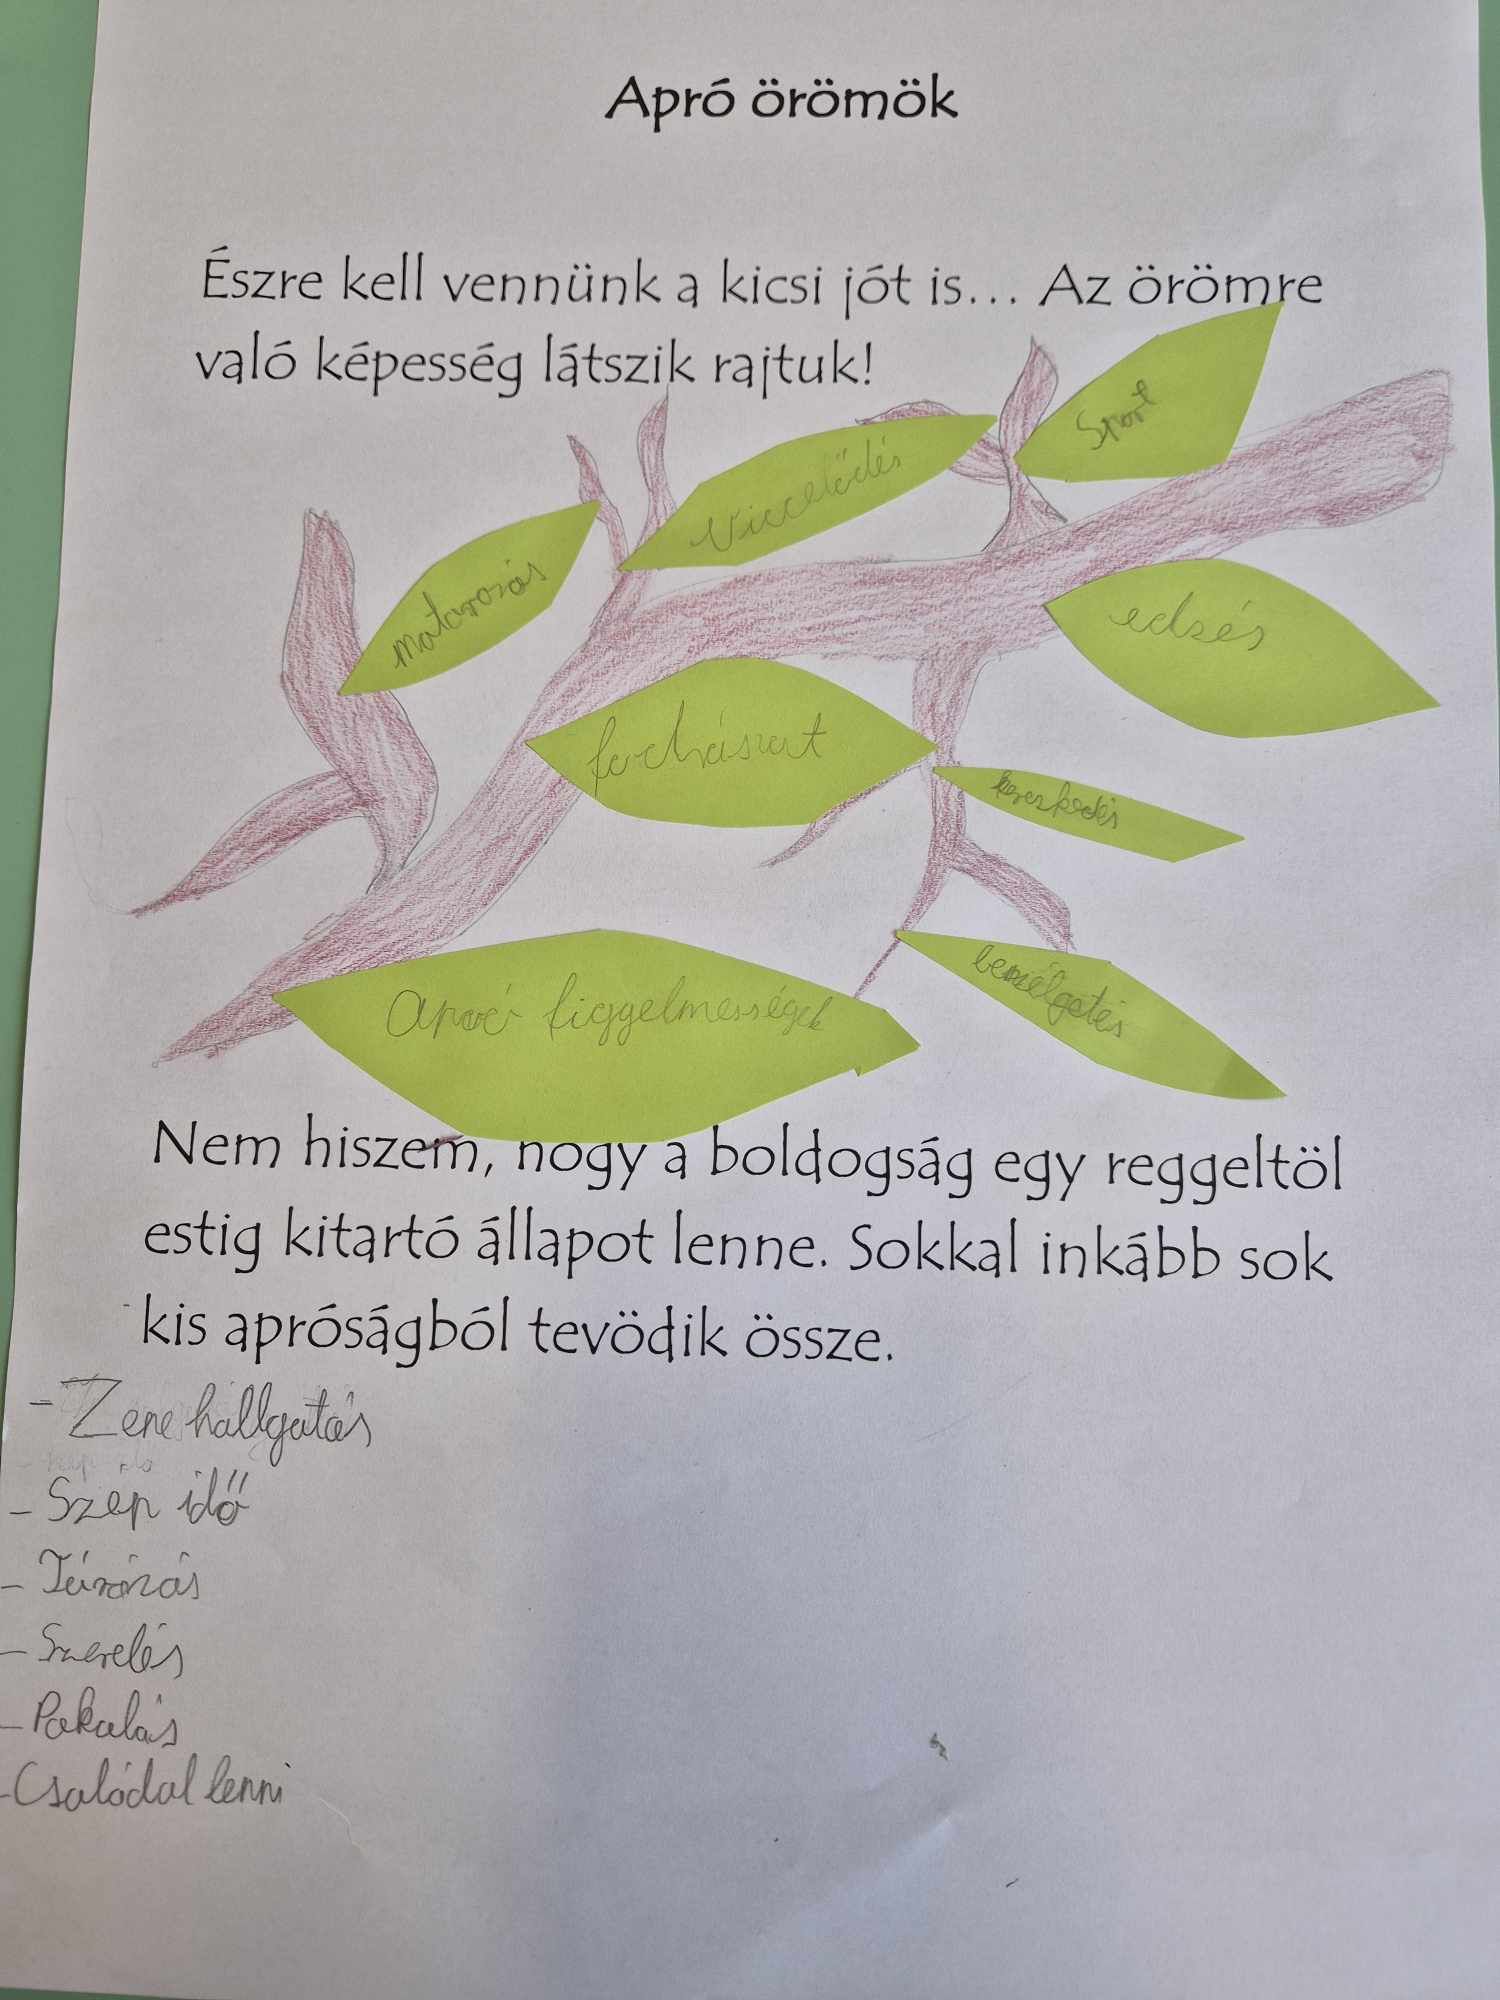 Apró örömök
Észre kell vennünk a kicsi jót is... Az örömre
való képesség látszik rajtuk!
Sport
Viccelődés
motorozás
edzés
fodrászat
kereskedés
beszélgetés
Apró figgelmességek
Nem hiszem, hogy a boldogság egy reggeltöl
estig kitartó állapot lenne. Sokkal inkább sok
kis apróságból tevödik össze.
- Zene hallgatás
- Szép idő
- Túrázás
- Szerelés
- Pakolás
- Csalódal lenni